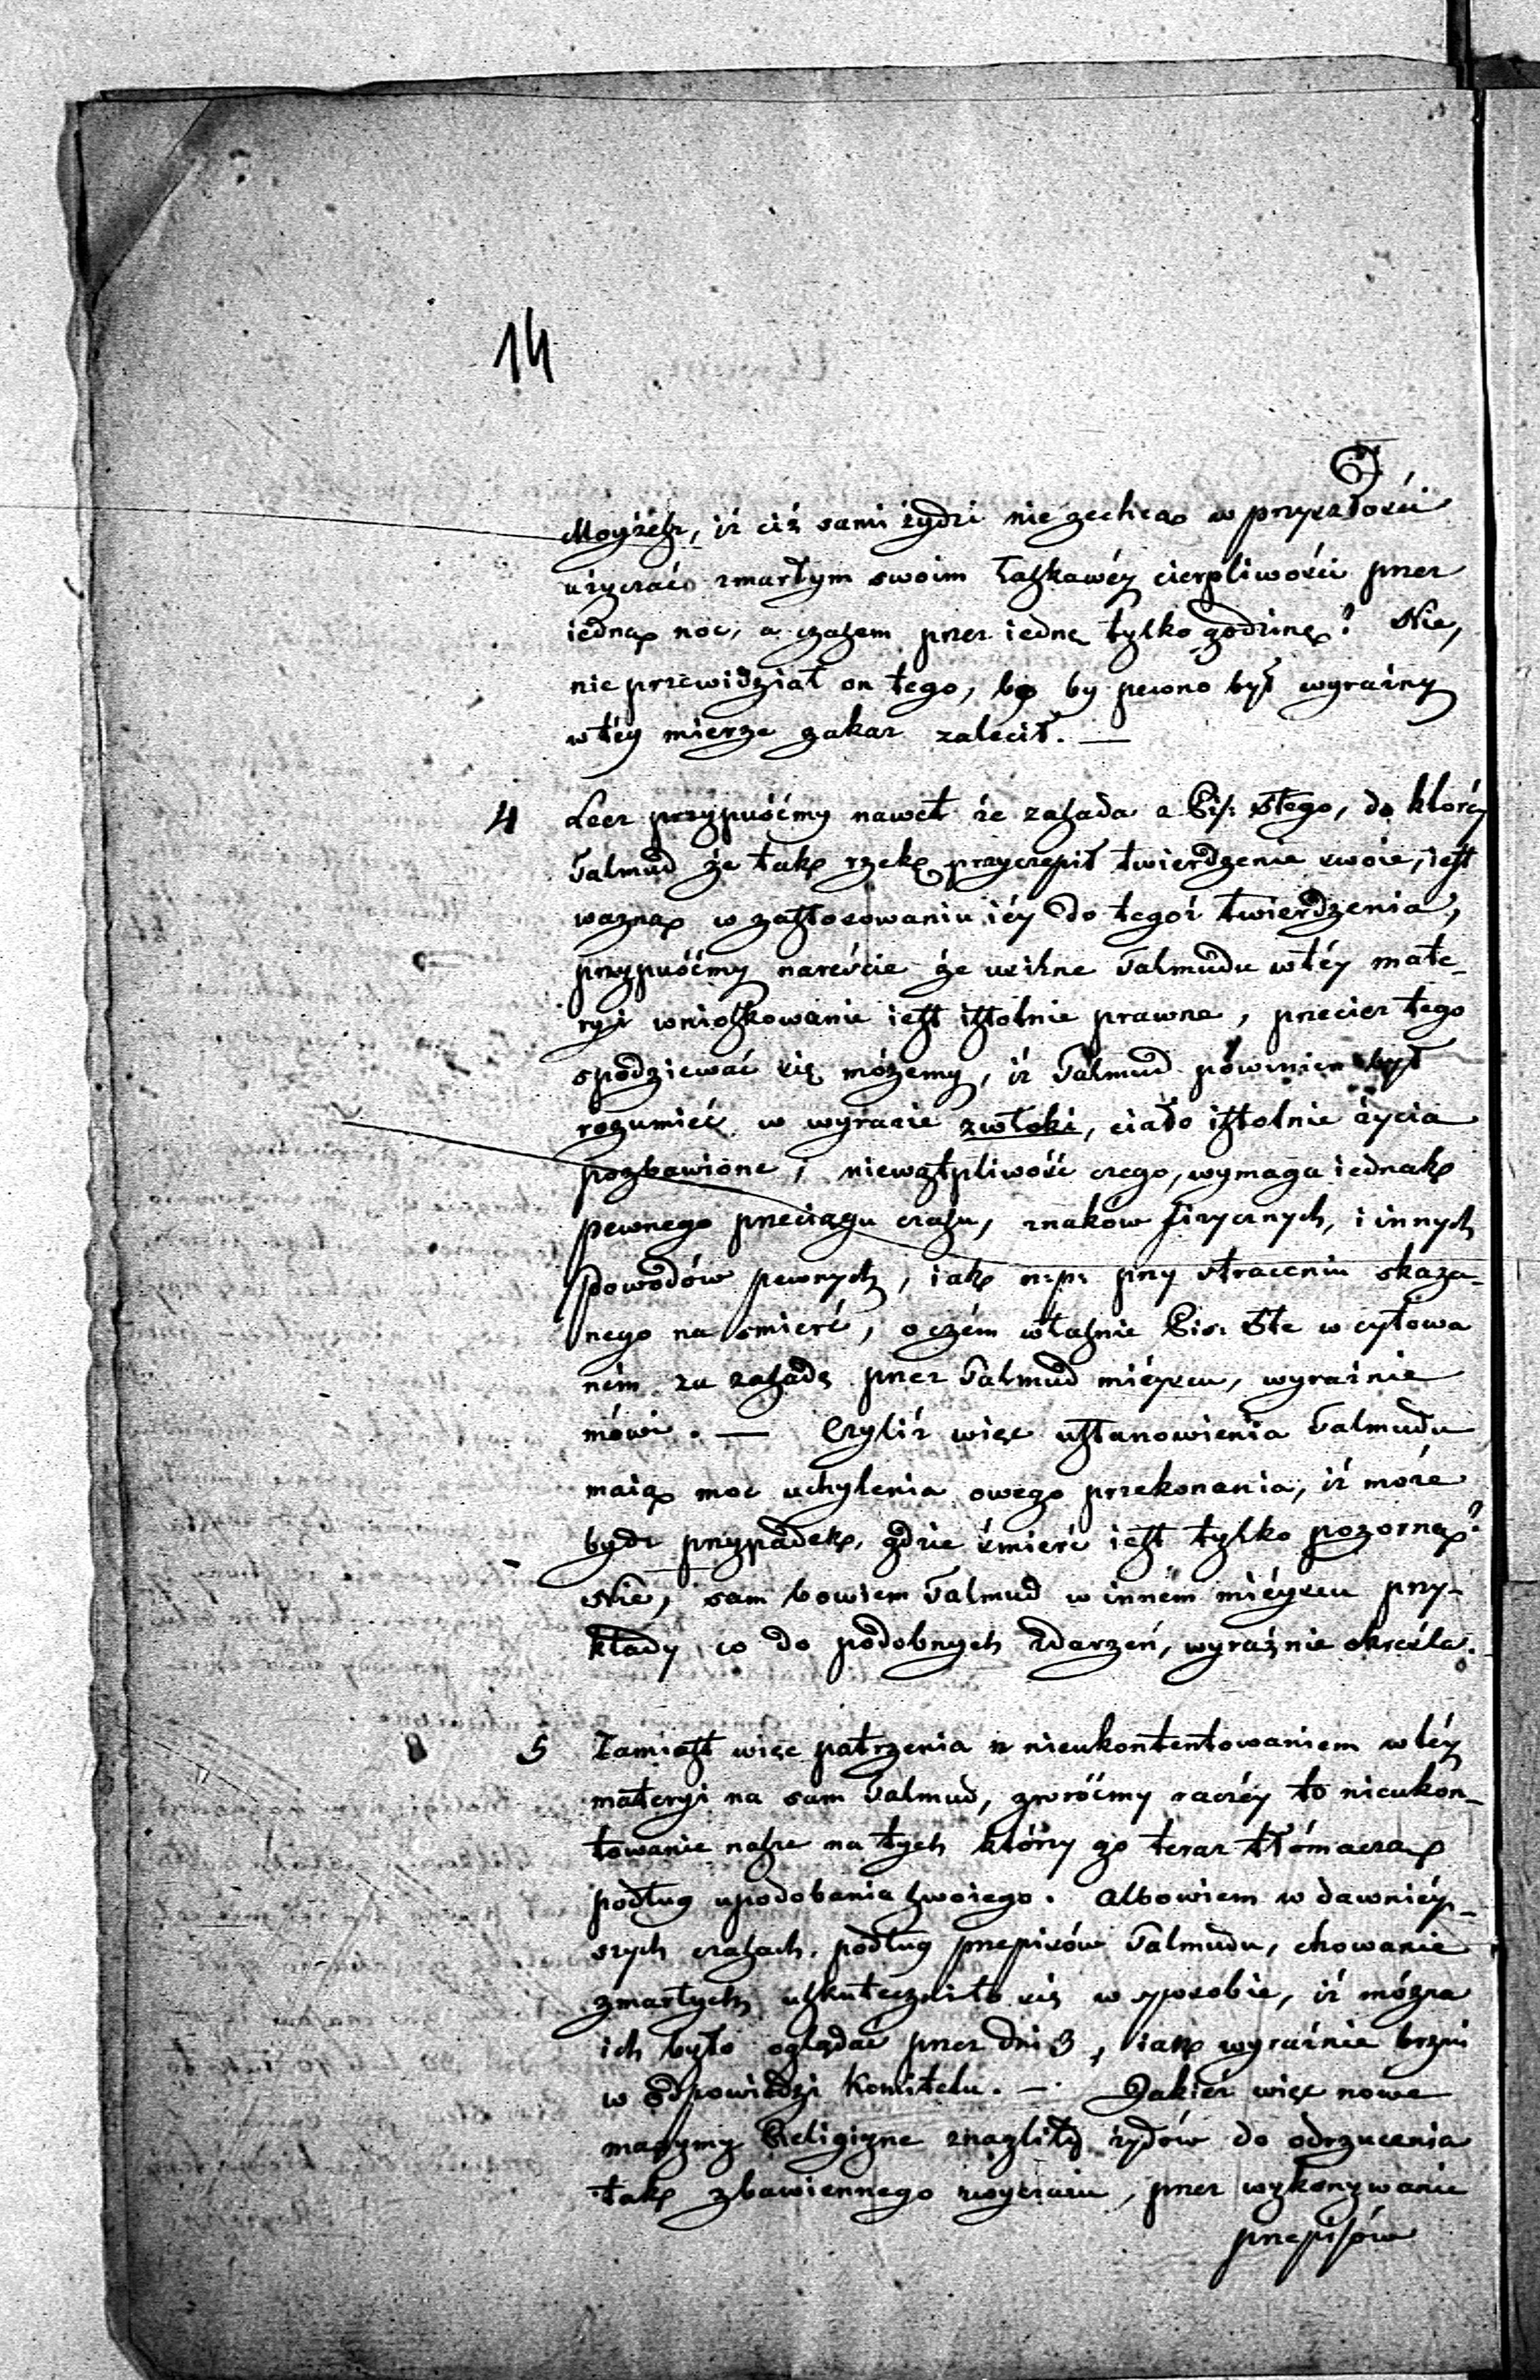 14
6
Moyżesz, iż ciż sami żydzi nie zechcą w przyszłości
użyczać zmarłym swoim łaskawéy cierpliwości przez
iedną noc, a czasem przez iednę tylko godzinę? Nie,
nie przewidział on tego, bo by pewno był wyraźny
w téy mierze zakaz zalecił. —
4 Lecz przypuśćmy nawet że zasada z Pis: Stego, do któréy
Talmud że tak rzekę przyczepił twierdzenie swoie, iest
ważną w zastosowaniu iéy do tegoż twierdzenia,
przypuśćmy nareście że usilne Talmudu w téy mate-
ryi wnioskowanie iest istotnie prawne, przecież tego
spodziewać się możemy, iż Talmud powinien był
rozumieć w wyrazie zwłoki, ciało istotnie życia
pozbawione; niewątpliwość czego, wymaga iednak
pewnego przeciągu czasu, znaków fizycznych, i innych
powodów pewnych, iak n:p: przy straceniu skaza-
nego na śmierć, o czém właśnie Pis: Ste w cytowa
ném za zasadę przez Talmud miéyscu, wyraźnie
mówi. — Czyliż więc ustanowienia Talmudu
maią moc uchylenia owego przekonania, iż może
bydź przypadek, gdzie śmierć iest tylko pozorną?
Nie, sam bowiem Talmud w inném miéyscu przy-
kłady co do podobnych zdarzeń, wyraźnie określa.
5 Zamiast więc patrzenia z nieukontentowaniem w téy
materyi na sam Talmud, zwróćmy raczéy to nieukon-
towanie nasze na tych którzy go teraz tłómaczą
podług upodobania swoiego. Albowiem w dawniéy-
szych czasach, podług przepisów Talmudu, chowanie
zmarłych uskuteczniło się w sposobie, iż można
ich było oglądać przez dni 3, iak wyraźnie brzmi
w odpowiedzi Komitetu. — Jakież więc nowe
maxymy Religiyne znagliły żydów do odrzucenia
tak zbawiennego zwyczaiu, przez wykonywanie
przepisów